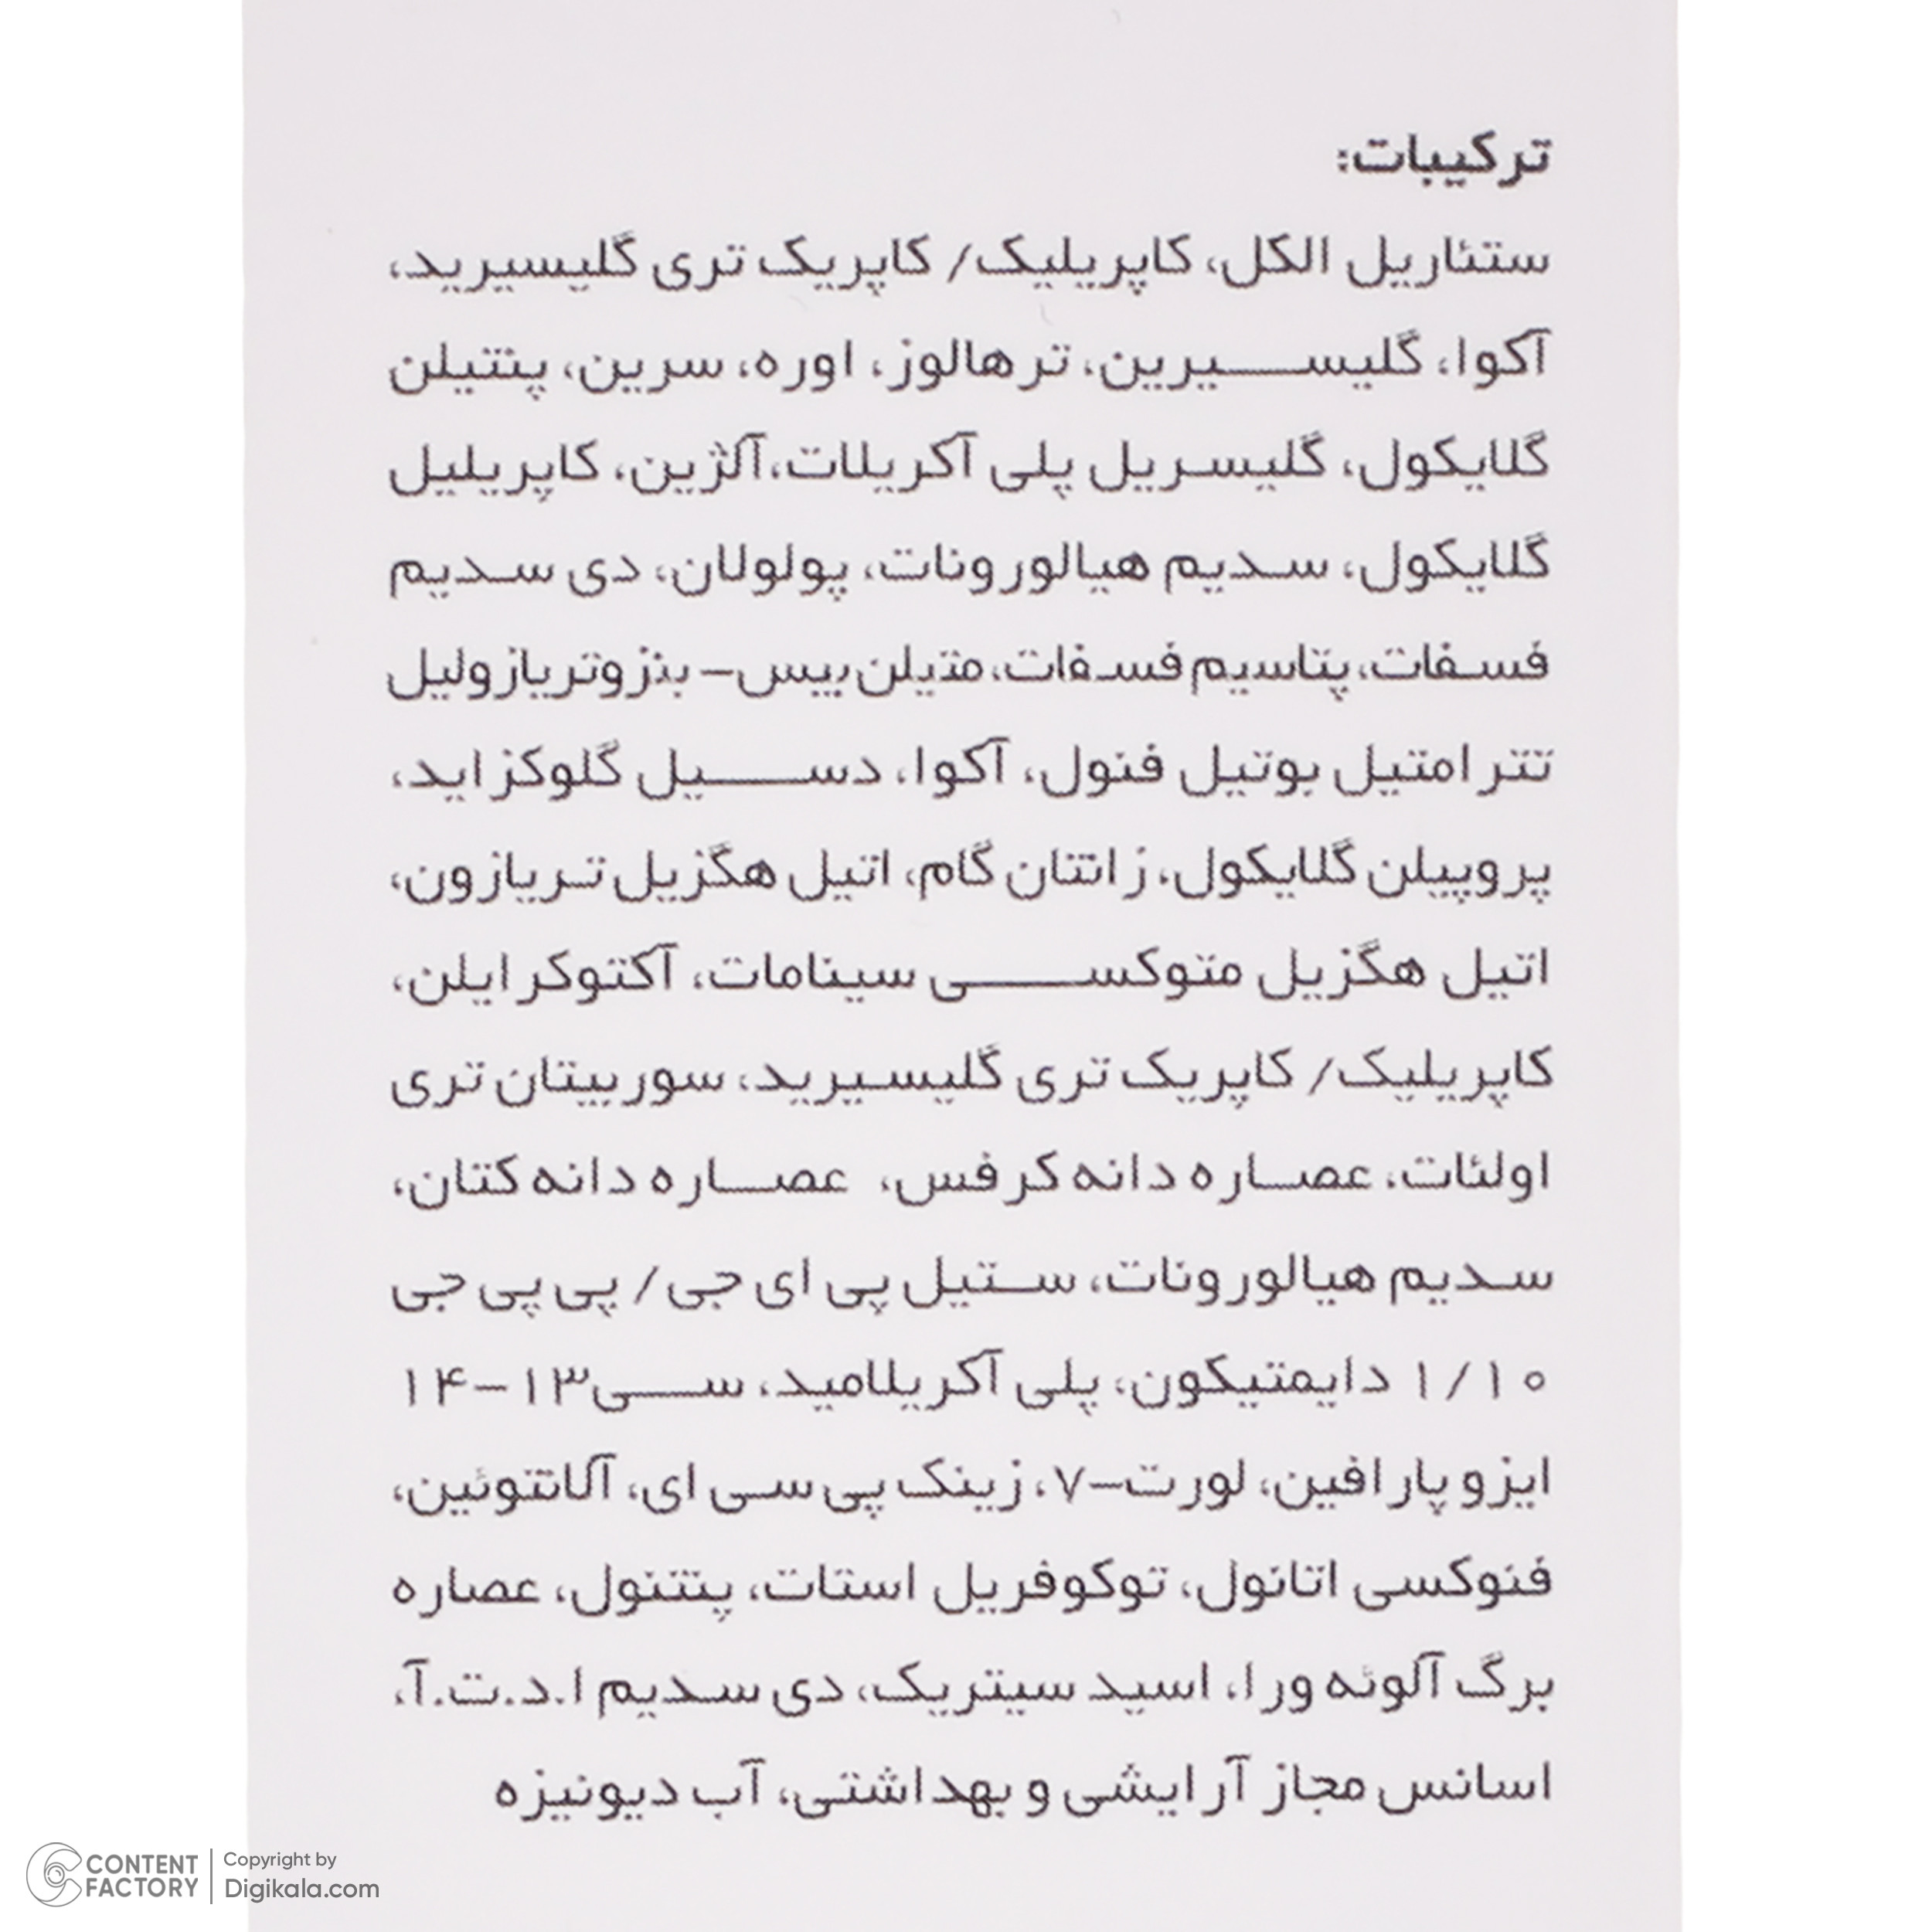 ترکیبات:
ستئاریل الکل، کاپریلیک/ کاپریک تری گلیسیرید،
آکوا، گلیسیرین، ترهالوز، اوره، سرین، پنتیلن
گلایکول، گلیسریل پلی آکریلات،آلژین، کاپریلیل
گلایکول، سدیم هیالورونات، پولولان، دی سدیم
فسفات، پتاسیم فسفات، متیلن بیس- بنزوتریازولیل
تترامتیل بوتیل فنول، آکوا، دسیل گلوکزاید،
پروپیلن گلایکول، زانتان گام، اتیل هگزیل تریازون،
اتیل هگزیل متوکسی سینامات، آکتوکرایلن،
کاپریلیک/ کاپریک تری گلیسیرید، سوربیتان تری
اولئات، عصاره دانه کرفس، عصاره دانه کتان،
سدیم هیالورونات، ستیل پی ای جی/ پی پی جی
۱/۱۰ دایمتیکون، پلی آکریلامید، سی۱۳-۱۴
ایزو پارافین، لورت-۷، زینک پی سی ای، آلانتوئین،
فنوکسی اتانول، توکوفریل استات، پنتنول، عصاره
برگ آلوئه ورا، اسید سیتریک، دی سدیم ا.د.ت.آ،
اسانس مجاز آرایشی و بهداشتی، آب دیونیزه
CONTENT FACTORY
Copyright by
Digikala.com